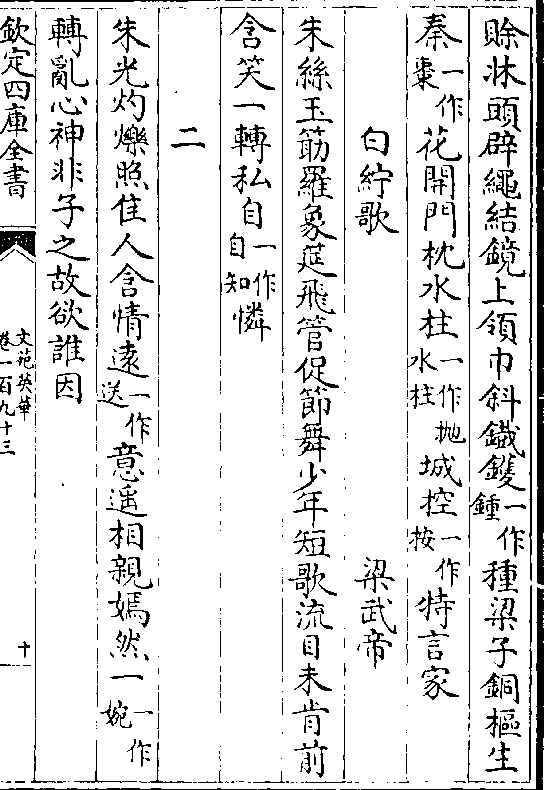 賒牀頭辟繩結鏡上領巾斜鐵鑊一作鍾種梁子銅樞生
秦一作棗花開門枕水柱一作拋水柱城控一作按特言家
白紵歌 梁武帝
朱絲玉筯羅象筵飛管促節舞少年短歌流目未肯前
含笑一轉私自一作自知憐
二
朱光灼爍照佳人含情遠一作送意遥相親嫣然一一作婉
轉亂心神非子之故欲誰因
欽定四庫全書
文苑英華
卷一百九十三
十